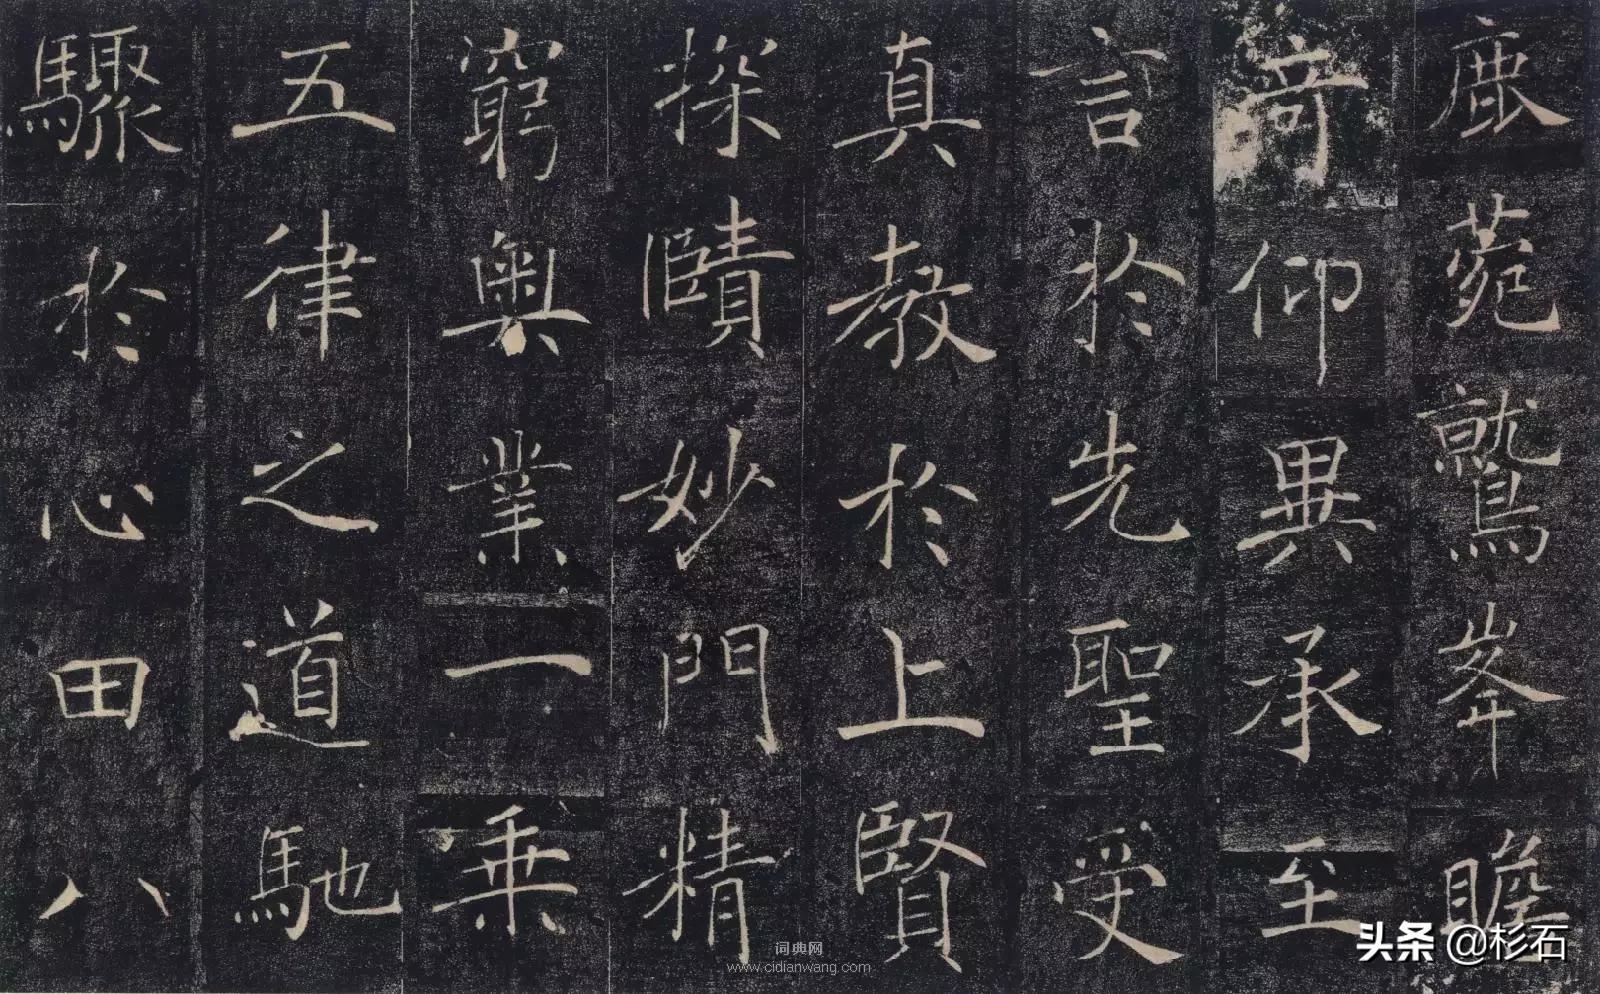 鹿菀鷲峯瞻
竒仰異承至
言於先聖受
真教於上賢
探賾妙門精
窮奧業一乗
五律之道馳
驟於心田八
词典网
www.cidianwang.com
头条 @杉石